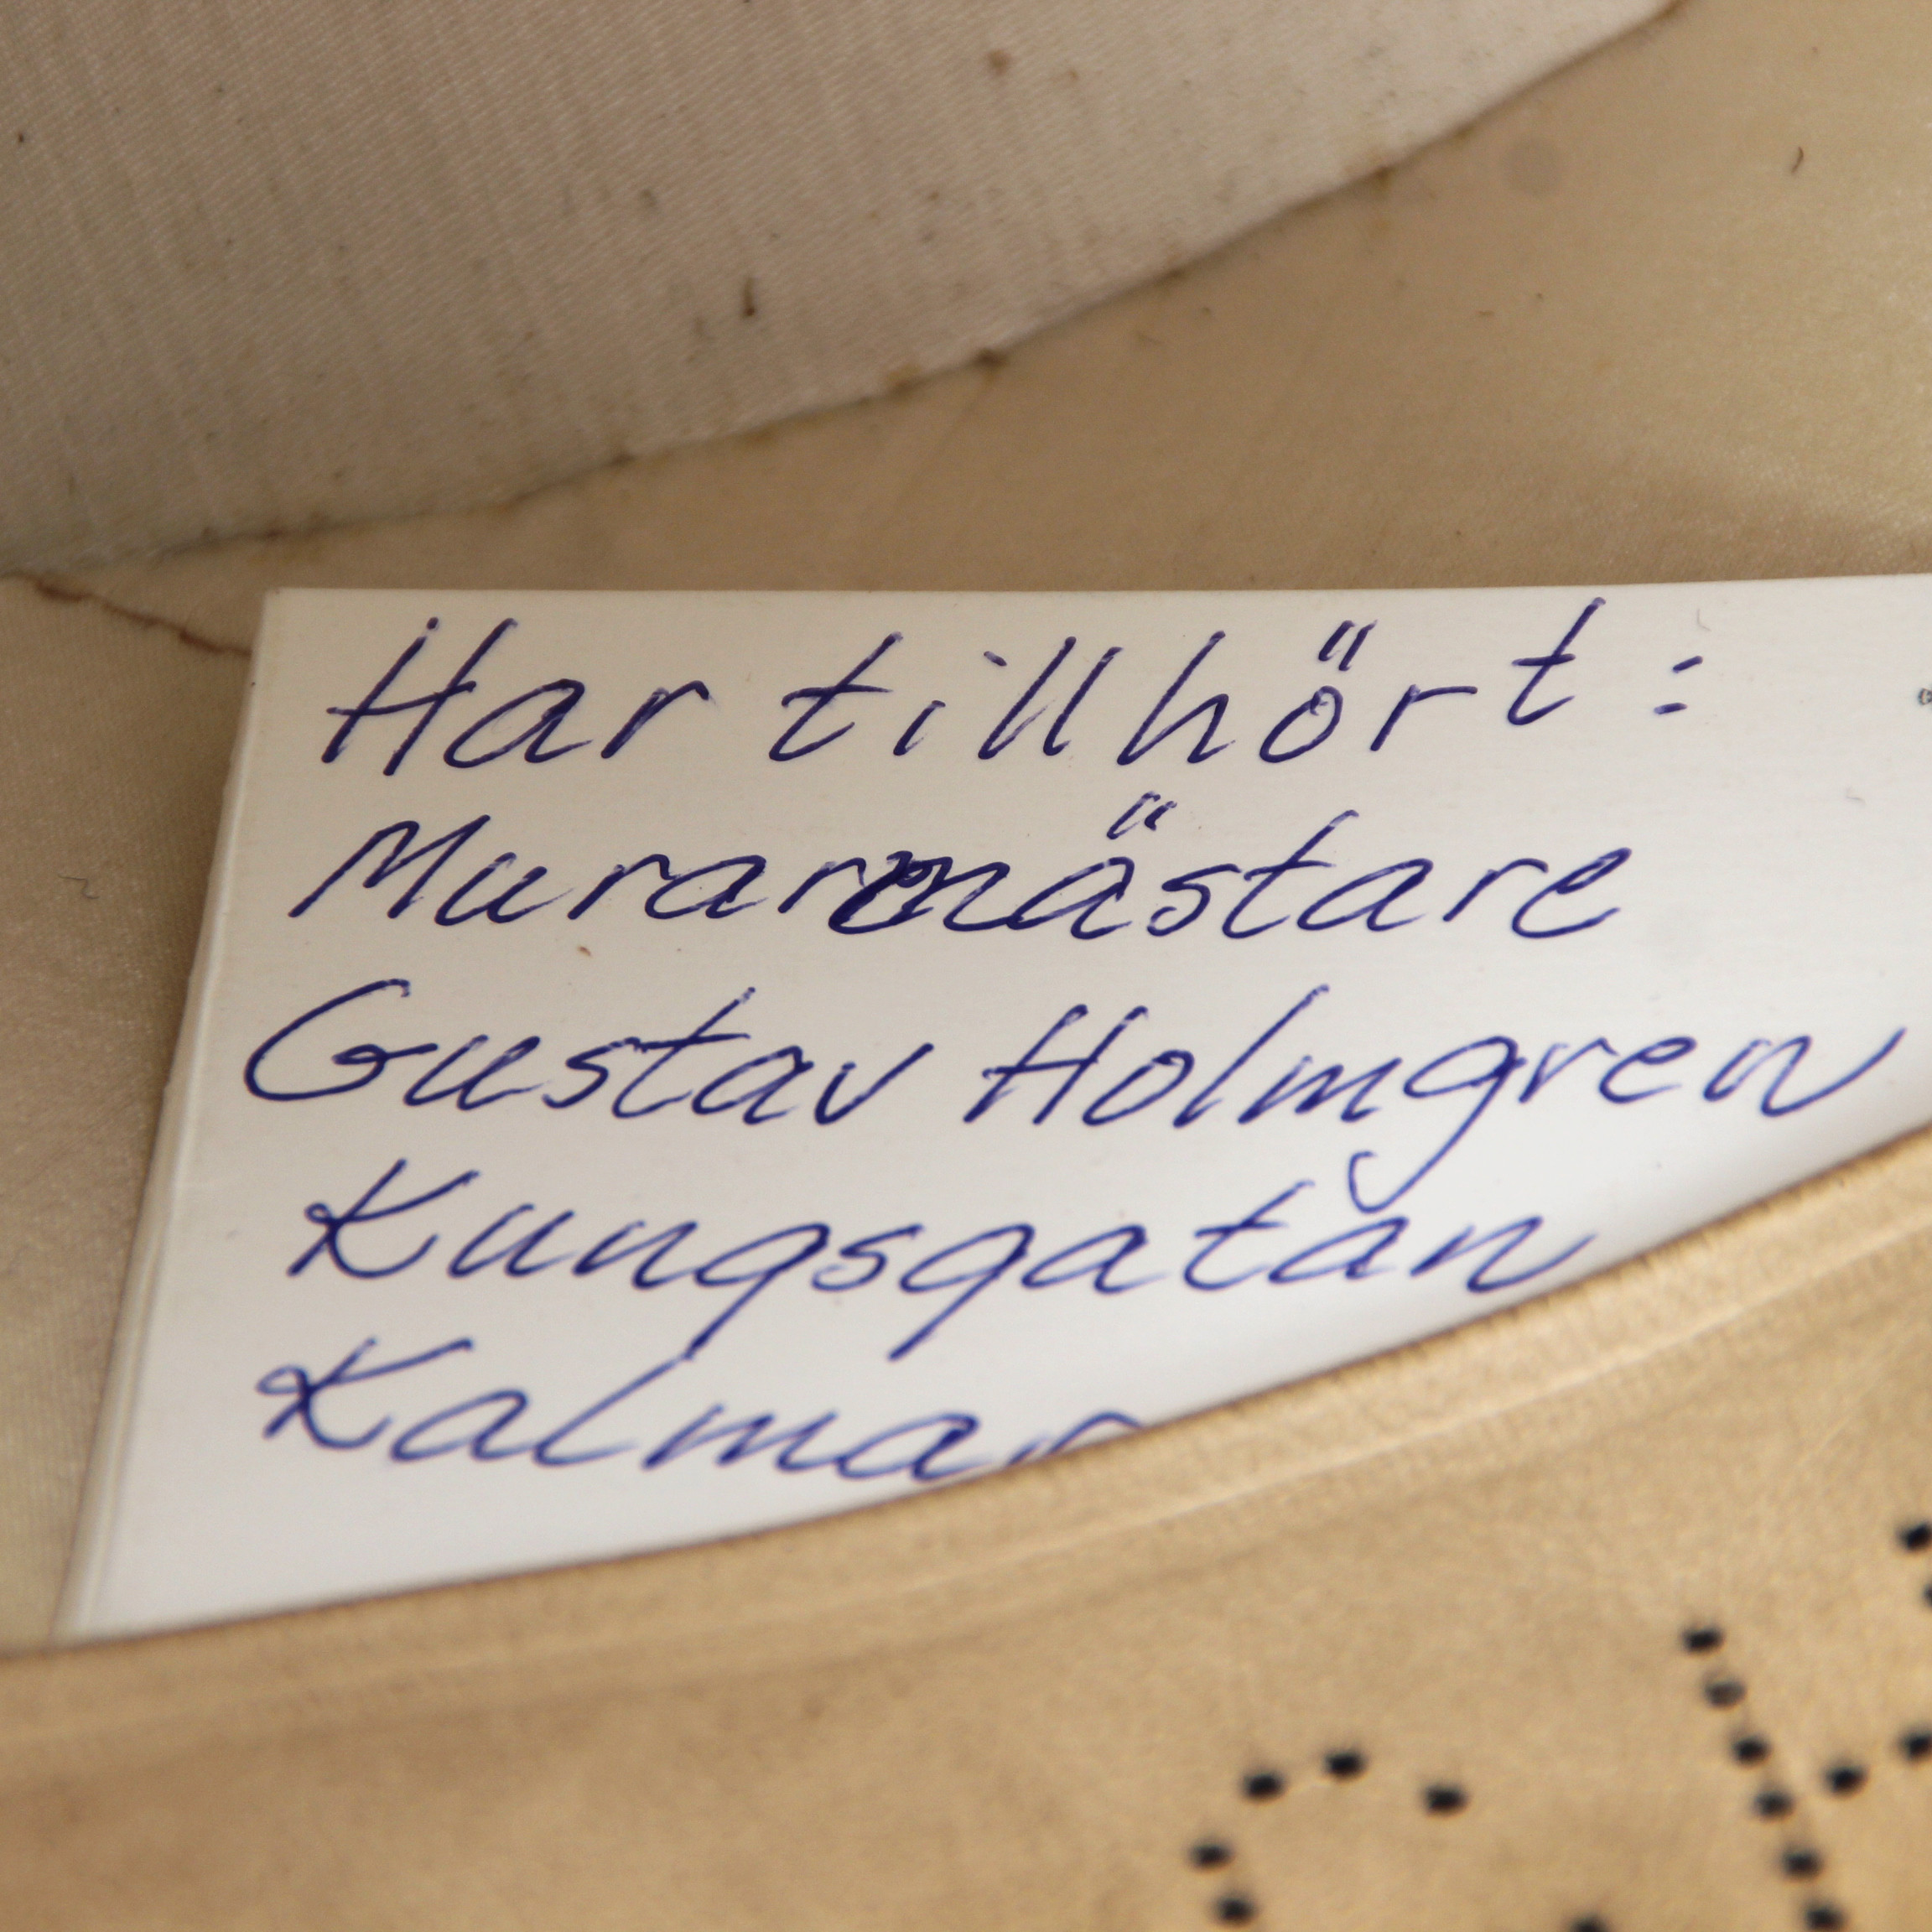 Har tillhört:
Murarmästare
Gustav Holmgren
Kungsgatan
Kalmar